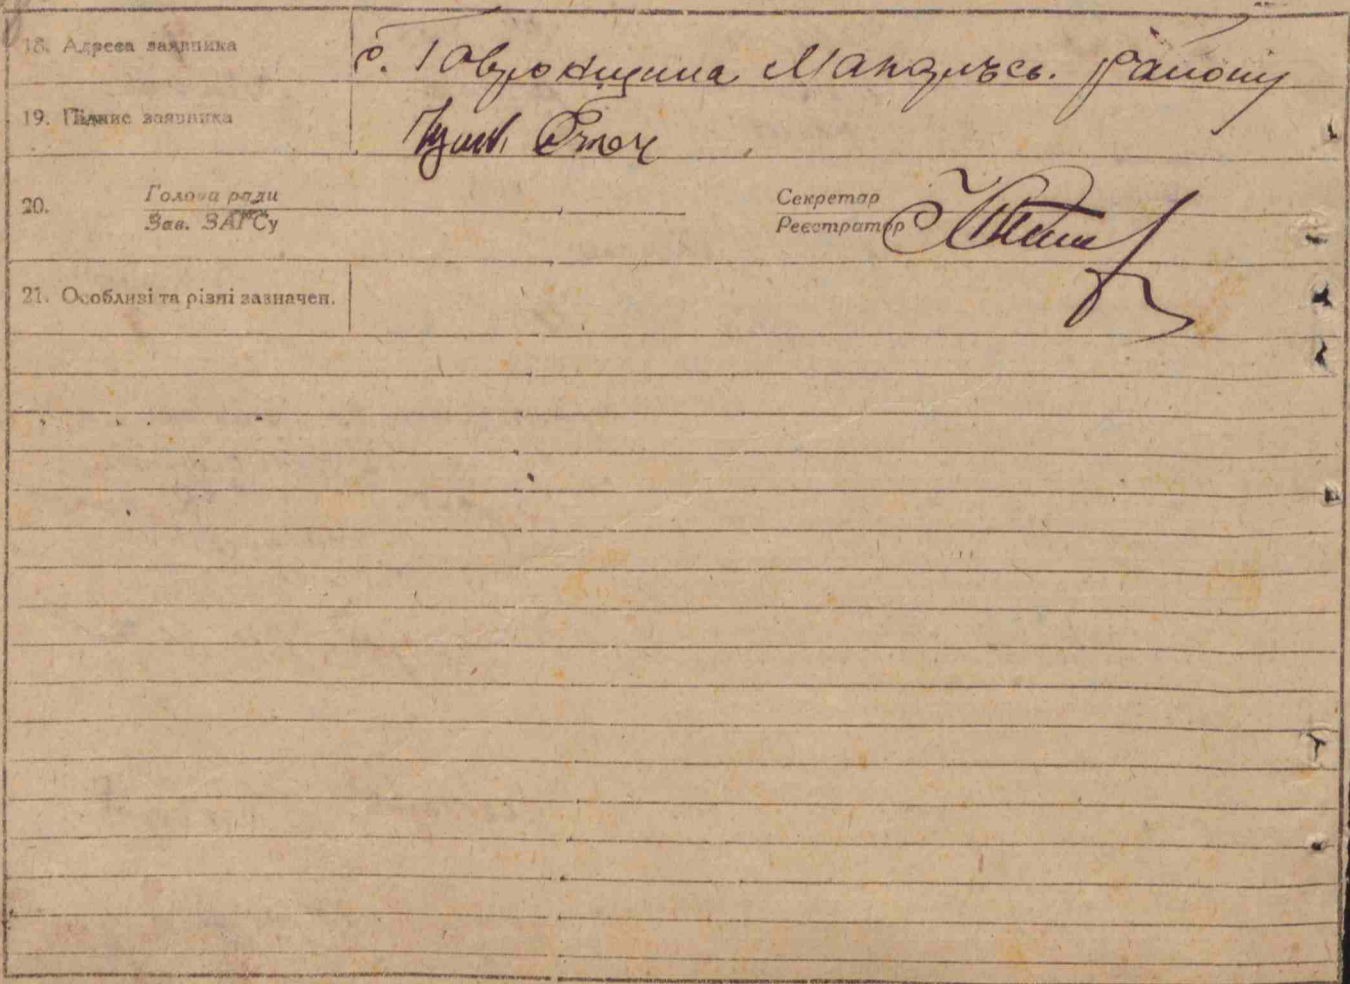 18. Адреса заявника с. Гавронщина Макарівсь. району
19. Підпис заявника
20. Голова ради Секретар
Зав. ЗАГСу Реєстратор
21. Особливі та різні зазначен.